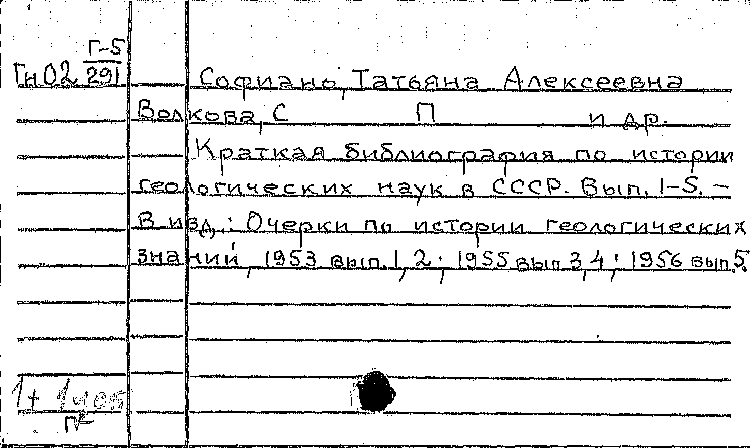 Г-5
Гн02 291 Софиано, Татьяна Алексеевна
Волкова, С П и др.
Краткая библиография по истории
геологических наук в СССР. Вып. 1-5. -
В изд.: Очерки по истории геологических
знаний, 1953 вып. 1, 2; 1955 вып 3,4; 1956 вып. 5.
1+